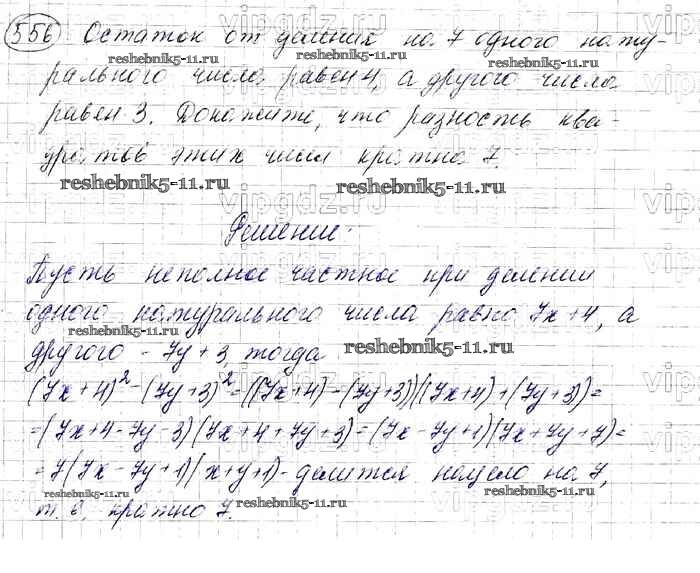 556 Остаток от деления на 7 одного нату-
рального числа равен 4, а другого числа
равен 3. Докажите, что разность ква-
дратов этих чисел кратна 7.
reshebnik5-11.ru
Решение:
Пусть неполное частное при делении
одного натурального числа равно 7x+4, а
другого - 7y+3, тогда
(7x+4)²-(7y+3)²=((7x+4)-(7y+3))((7x+4)+(7y+3))=
=(7x+4-7y-3)(7x+4+7y+3)=(7x-7y+1)(7x+7y+7)=
=7(7x-7y+1)(x+y+1)- делится нацело на 7,
т. е. кратно 7.